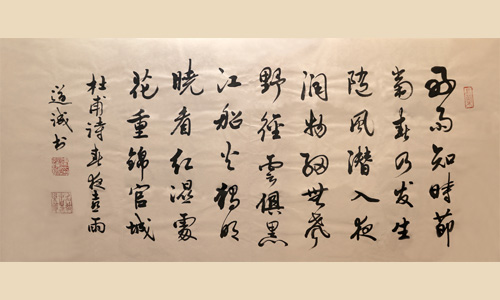 好雨知時節
當春乃发生
随風潜入夜
润物細無聲
野徑雲俱黑
江船火獨明
曉看红濕處
花重錦官城
杜甫詩春夜喜雨
道诚书